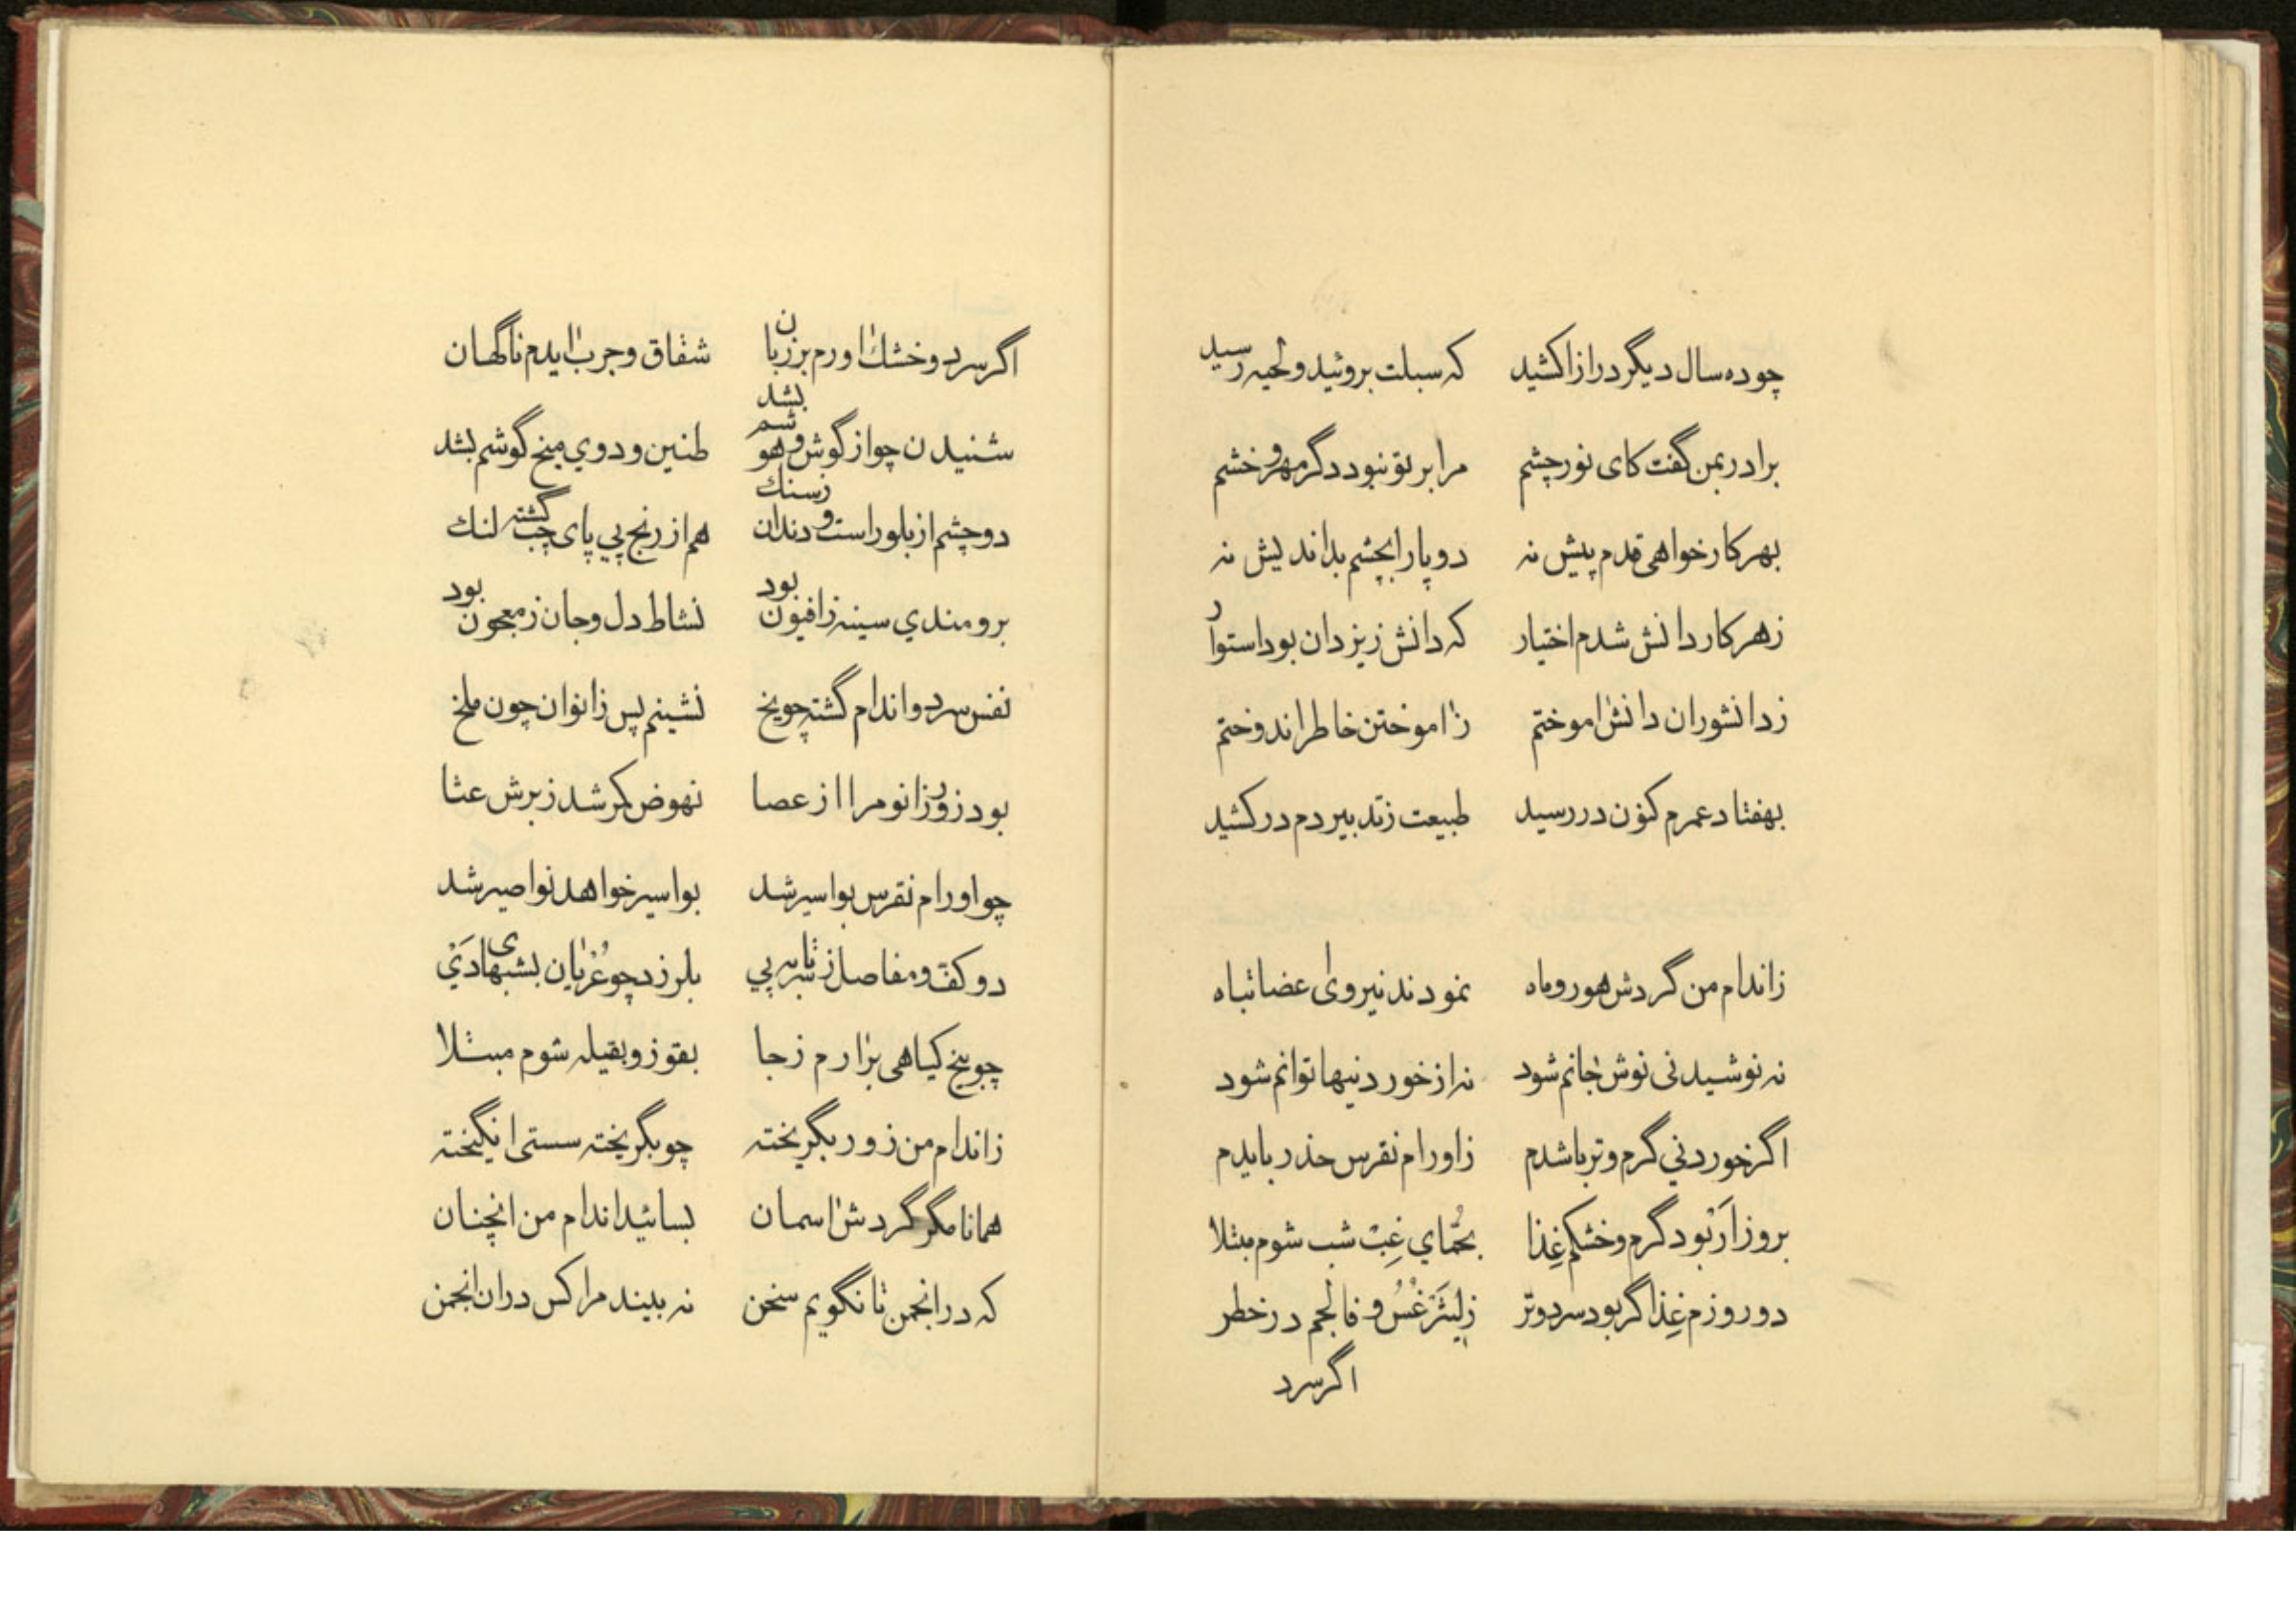 چو ده سال دیگر دراز اکشید که سبلت بروئید و لحیه رسید
برادر بمن گفت کای نور چشم مرا بر تو نبود دگر مهر و خشم
بهر کار خواهی قدم پیش نه دو پا را بچشم بداندیش نه
ز هر کار دانش شدم اختیار که دانش ز یزدان بود استوار
ز دانشوران دانش اموختم ز اموختن خاطر اندوختم
بهفتاد عمرم کنون در رسید طبیعت ز تدبیر دم در کشید
ز اندام من گردش هور و ماه نمودند نیروی اعضا تباه
نه نوشیدنی نوش جانم شود نه از خوردنیها توانم شود
اگر خوردني گرم و تر باشدم ز اورام نقرس حذر بایدم
بروز ار بود گرم و خشکم غذا بحمّاي غبّ شب شوم مبتلا
دو روزم غذا گر بود سرد و تر ز لیثرغس و فالجم در خطر
اگر سرد
اگر سرد و خشك اورم بر زبان شقاق و جرب ایدم ناگهان
شنیدن چو از گوش و هوشم بشد طنین و دوي میخ گوشم بشد
دو چشم از بلور است و دندان ز سنك هم از رنج پي پای چپ گشته لنك
برومندي سینه ز افیون بود نشاط دل و جان ز معجون بود
نفس سرد و اندام گشته چو یخ نشینم پس زانوان چون ملخ
بود زور زانو مرا از عصا نهوض کمر شد ز برش عثا
چو اورام نقرس بواسیر شد بواسیر خواهد نواصیر شد
دو کتف و مفاصل ز سر تا به پي بلرزد چو عریان بشبهای دی
چو بیخ کیاهی برارم ز جا بقوز و بقیله شوم مبتلا
ز اندام من زور بگریخته چو بگریخته سستی انگیخته
همانا مگر گردش اسمان بسائید اندام من انچنان
که در انجمن تا نگویم سخن نه بیند مرا کس دران انجمن